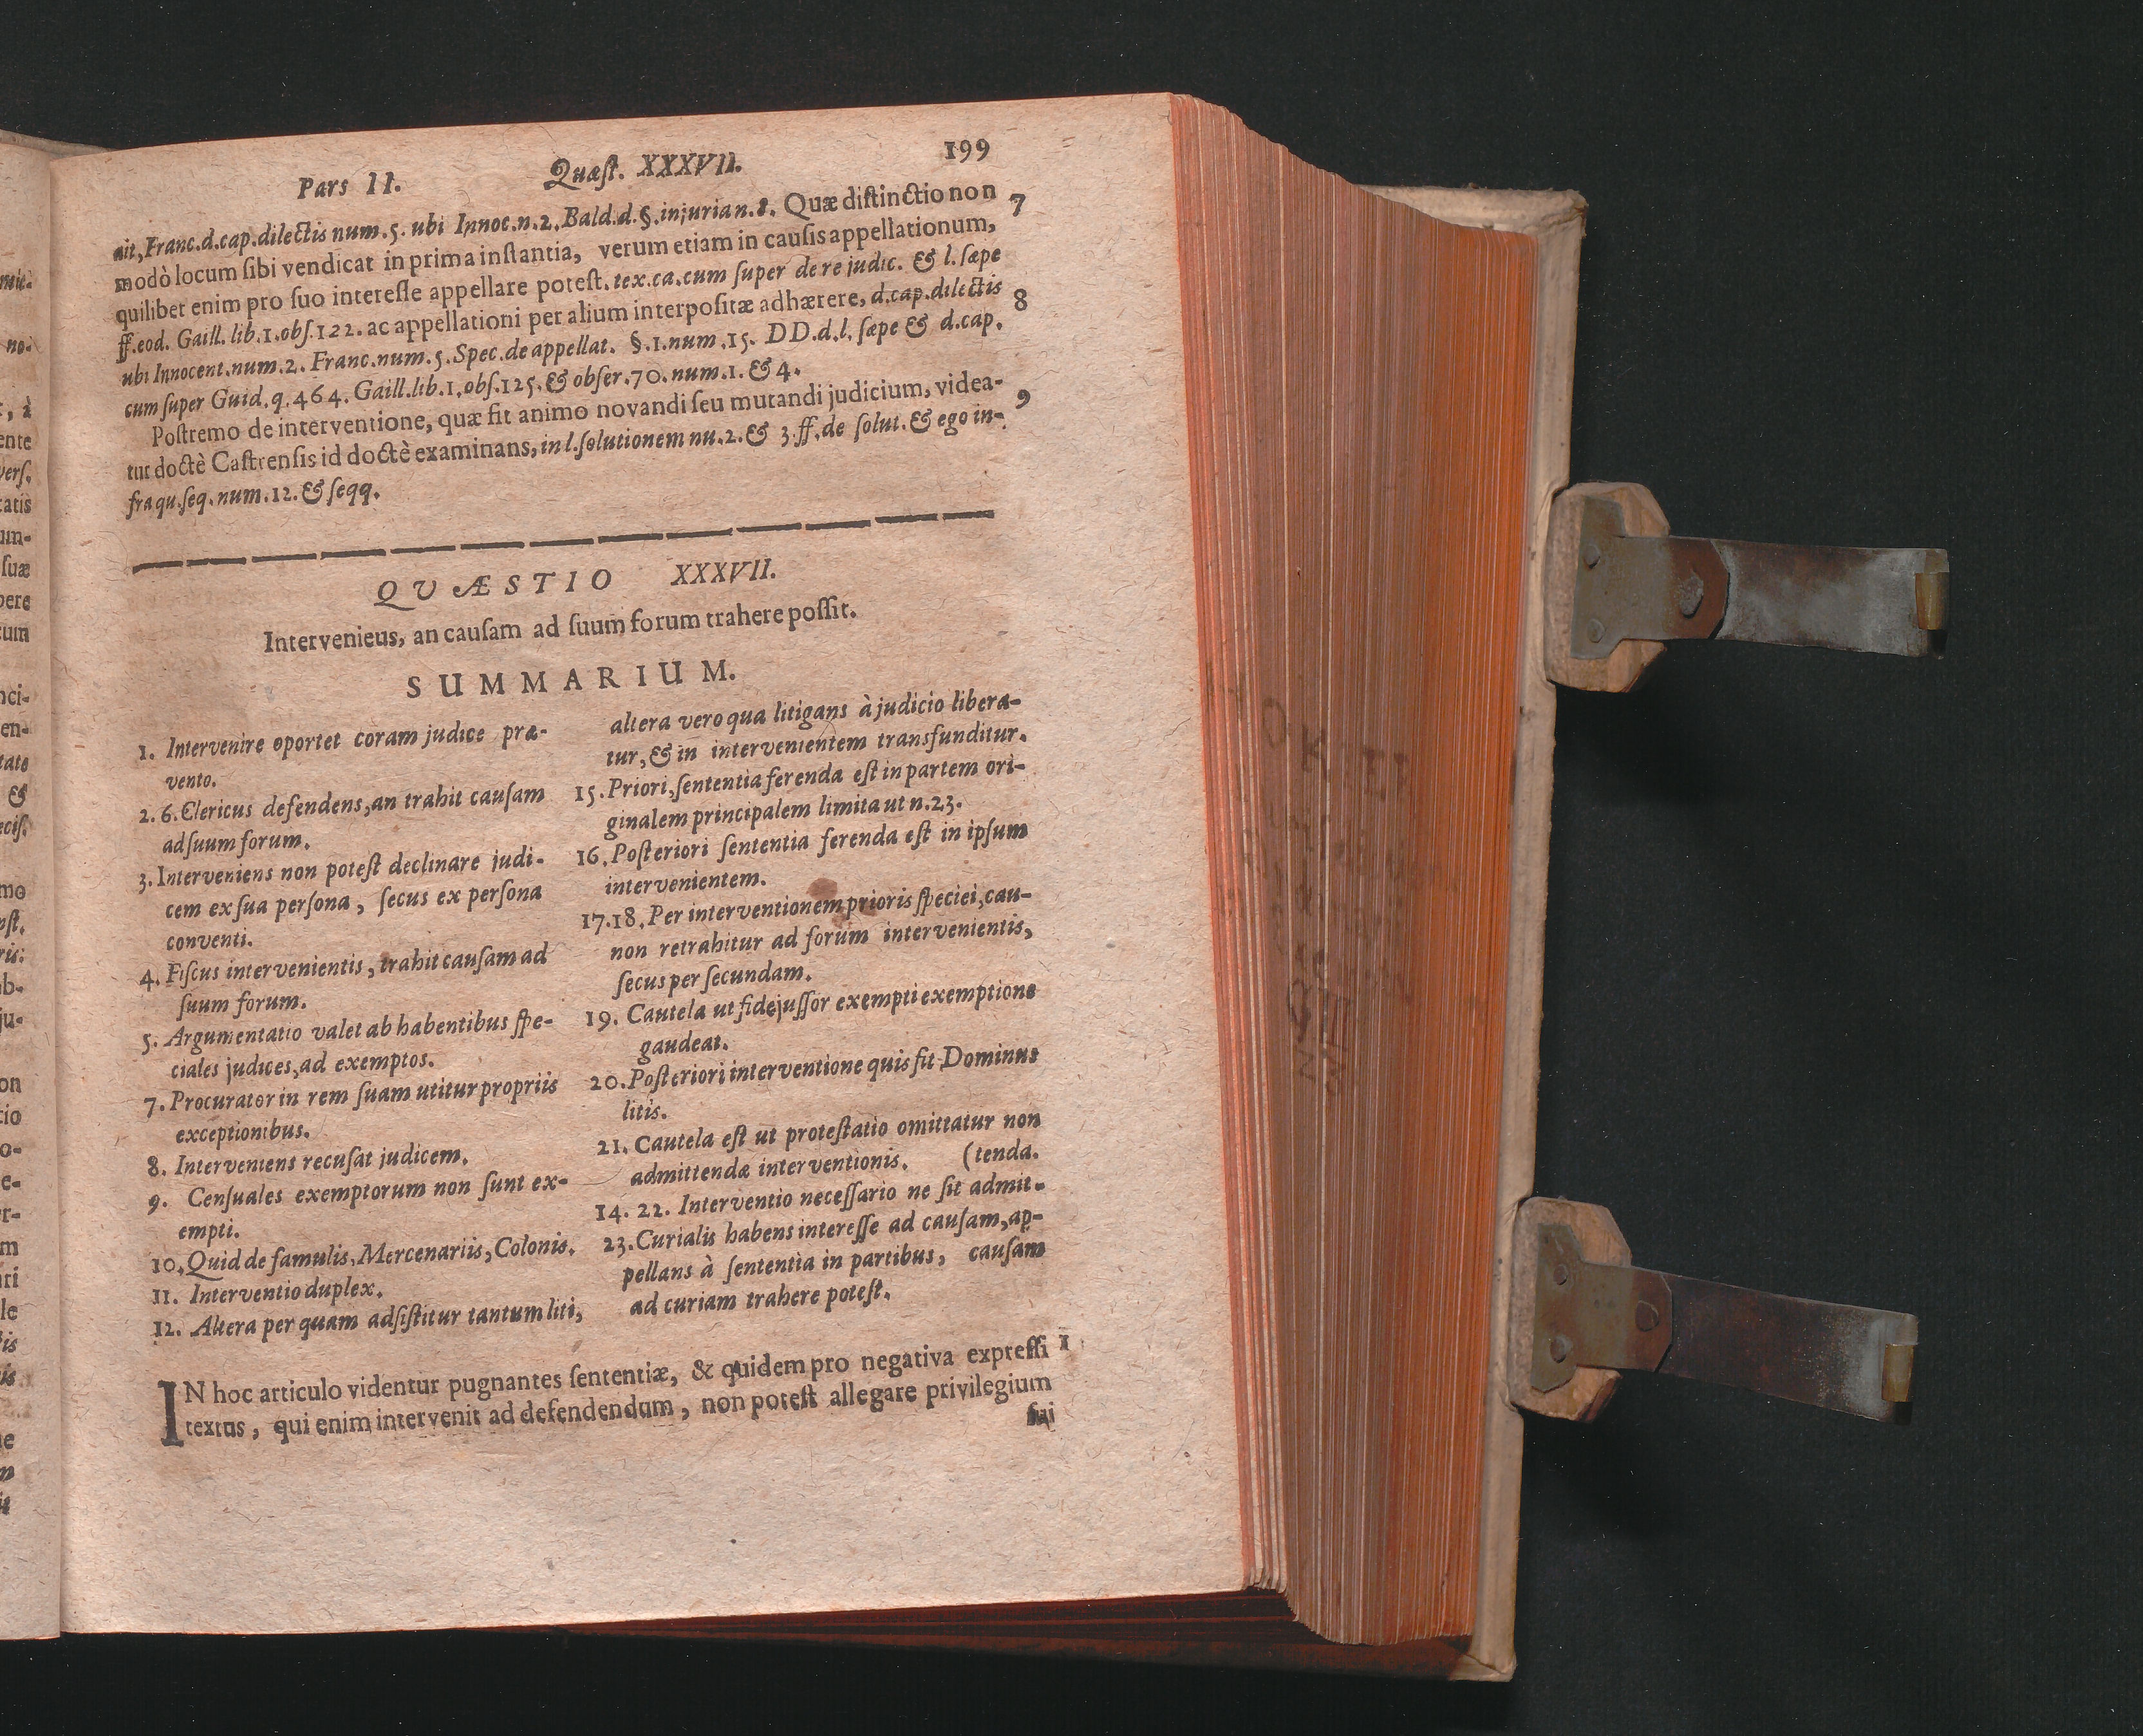 Pars II. Quæſt. XXXVII. 199
ait, Franc.d.cap.dilectis num.5. ubi Innoc.n.2. Bald.d.§.injuria n.8. Quæ diſtinctio non 7
modò locum ſibi vendicat in prima inſtantia, verum etiam in cauſis appellationum,
quilibet enim pro ſuo intereſſe appellare poteſt. tex.ca.cum ſuper de re judic. & l.ſæpe
ff.eod. Gaill.lib.1.obſ.122. ac appellationi per alium interpoſitæ adhærere, d.cap.dilectis 8
ubi Innocent.num.2. Franc.num.5. Spec.de appellat. §.1.num.15. DD.d.l.ſæpe & d.cap.
cum ſuper Guid.q.464. Gaill.lib.1.obſ.125. & obſer.70.num.1. & 4.
Poſtremo de interventione, quæ fit animo novandi ſeu mutandi judicium, videa- 9
tur doctè Caſtrenſis id doctè examinans, in l.ſolutionem nu.2. & 3.ff.de ſolut. & ego in-
fra qu.ſeq.num.12. & ſeqq.
QUÆSTIO XXXVII.
Intervenieus, an cauſam ad ſuum forum trahere poſſit.
SUMMARIUM.
1. Intervenire oportet coram judice præ-
vento.
2. 6. Clericus defendens, an trahit cauſam
ad ſuum forum.
3. Interveniens non poteſt declinare judi-
cem ex ſua perſona, ſecus ex perſona
conventi.
4. Fiſcus intervenientis, trahit cauſam ad
ſuum forum.
5. Argumentatio valet ab habentibus ſpe-
ciales judices, ad exemptos.
7. Procurator in rem ſuam utitur propriis
exceptionibus.
8. Interveniens recuſat judicem.
9. Cenſuales exemptorum non ſunt ex-
empti.
10. Quid de famulis, Mercenariis, Colonis.
11. Interventio duplex.
12. Altera per quam adſiſtitur tantum liti,
altera vero qua litigans à judicio libera-
tur, & in intervenientem transfunditur.
15. Priori, ſententia ferenda eſt in partem ori-
ginalem principalem limita ut n.23.
16. Poſteriori ſententia ferenda eſt in ipſum
intervenientem.
17.18. Per interventionem prioris ſpeciei, cau-
non retrahitur ad forum intervenientis,
ſecus per ſecundam.
19. Cautela ut fidejuſſor exempti exemptione
gaudeat.
20. Poſteriori interventione quis fit Dominus
litis.
21. Cautela eſt ut proteſtatio omittatur non
admittendæ interventionis. (tenda.
14. 22. Interventio neceſſario ne ſit admit-
23. Curialis habens intereſſe ad cauſam, ap-
pellans à ſententia in partibus, cauſam
ad curiam trahere poteſt.
IN hoc articulo videntur pugnantes ſententiæ, & quidem pro negativa expreſſi 1
textus, qui enim intervenit ad defendendum, non poteſt allegare privilegium
ſui